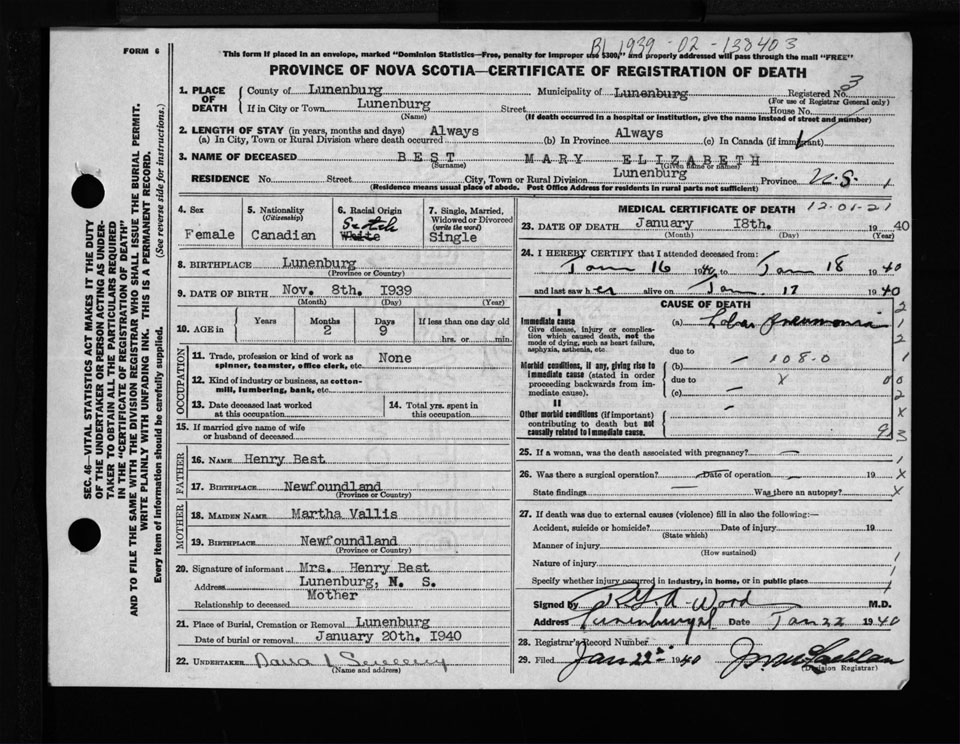 BI 1939 - 02 - 138403
FORM 6
This form if placed in an envelope, marked "Dominion Statistics—Free, penalty for improper use $300," and properly addressed will pass through the mail "FREE"
PROVINCE OF NOVA SCOTIA—CERTIFICATE OF REGISTRATION OF DEATH
SEC. 46—VITAL STATISTICS ACT MAKES IT THE DUTY
OF THE UNDERTAKER OR PERSON ACTING AS UNDER-
TAKER TO OBTAIN ALL THE PARTICULARS REQUIRED
IN THE "CERTIFICATE OF REGISTRATION OF DEATH"
AND TO FILE THE SAME WITH THE DIVISION REGISTRAR WHO SHALL ISSUE THE BURIAL PERMIT.
WRITE PLAINLY WITH UNFADING INK. THIS IS A PERMANENT RECORD.
Every item of information should be carefully supplied. (See reverse side for instructions.)
1. PLACE OF DEATH
County of Lunenburg Municipality of Lunenburg Registered No. 3
(For use of Registrar General only)
If in City or Town Lunenburg Street House No.
(Name) (If death occurred in a hospital or institution, give the name instead of street and number)
2. LENGTH OF STAY (in years, months and days) Always Always
(a) In City, Town or Rural Division where death occurred (b) In Province (c) In Canada (if immigrant)
3. NAME OF DECEASED BEST MARY ELIZABETH
(Surname) (Given name or names)
RESIDENCE No. Street City, Town or Rural Division Lunenburg Province N.S.
(Residence means usual place of abode. Post Office Address for residents in rural parts not sufficient)
4. Sex
Female
5. Nationality
(Citizenship)
Canadian
6. Racial Origin
Scotch
White
7. Single, Married,
Widowed or Divorced
(write the word)
Single
8. BIRTHPLACE Lunenburg
(Province or Country)
9. DATE OF BIRTH Nov. 8th. 1939
(Month) (Day) (Year)
10. AGE in Years Months Days If less than one day old
2 9 hrs. or min.
OCCUPATION
11. Trade, profession or kind of work as None
spinner, teamster, office clerk, etc.
12. Kind of industry or business, as cotton-
mill, lumbering, bank, etc.
13. Date deceased last worked
at this occupation.
14. Total yrs. spent in
this occupation.
15. If married give name of wife
or husband of deceased
FATHER
16. NAME Henry Best
17. BIRTHPLACE Newfoundland
(Province or Country)
MOTHER
18. MAIDEN NAME Martha Vallis
19. BIRTHPLACE Newfoundland
(Province or Country)
20. Signature of informant Mrs. Henry Best
Address Lunenburg, N. S.
Relationship to deceased Mother
21. Place of Burial, Cremation or Removal Lunenburg
Date of burial or removal January 20th. 1940
22. UNDERTAKER
(Name and address)
MEDICAL CERTIFICATE OF DEATH 12-01-21
23. DATE OF DEATH January 18th. 1940
(Month) (Day) (Year)
24. I HEREBY CERTIFY that I attended deceased from:
Jan 16 1940 to Jan 18 1940
and last saw her alive on Jan 17 1940
CAUSE OF DEATH
I
Immediate cause
Give disease, injury or complica-
tion which caused death, not the
mode of dying, such as heart failure,
asphyxia, asthenia, etc.
(a) Lobar pneumonia
due to
Morbid conditions, if any, giving rise to
immediate cause (stated in order
proceeding backwards from im-
mediate cause).
(b) — 108.0
due to X
(c) —
II
Other morbid conditions (if important)
contributing to death but not
causally related to immediate cause.
25. If a woman, was the death associated with pregnancy? —
26. Was there a surgical operation? — Date of operation 19
State findings — Was there an autopsy?
27. If death was due to external causes (violence) fill in also the following:—
Accident, suicide or homicide? Date of injury 19
(State which)
Manner of injury
(How sustained)
Nature of injury
Specify whether injury occurred in industry, in home, or in public place
Signed by Wood M.D.
Address Lunenburg Date Jan 22 1940
28. Registrar's Record Number
29. Filed Jan 22 1940
(Division Registrar)